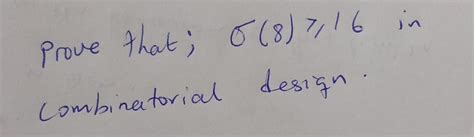 Prove that; σ(8) ⩾ 16 in
Combinatorial design.